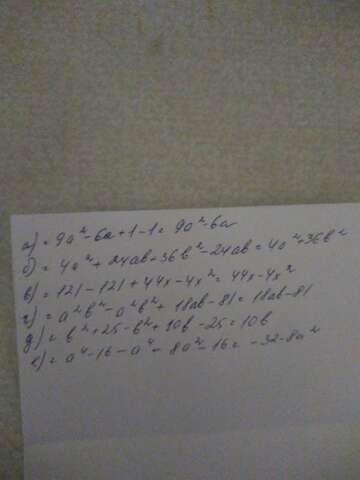 а) = 9a² - 6a + 1 - 1 = 9a² - 6a
б) = 4a² + 24ab + 36b² - 24ab = 4a² + 36b²
в) = 121 - 121 + 44x - 4x² = 44x - 4x²
г) = a²b² - a²b² + 18ab - 81 = 18ab - 81
д) = b² + 25 - b² + 10b - 25 = 10b
е) = a⁴ - 16 - a⁴ - 8a² - 16 = -32 - 8a²